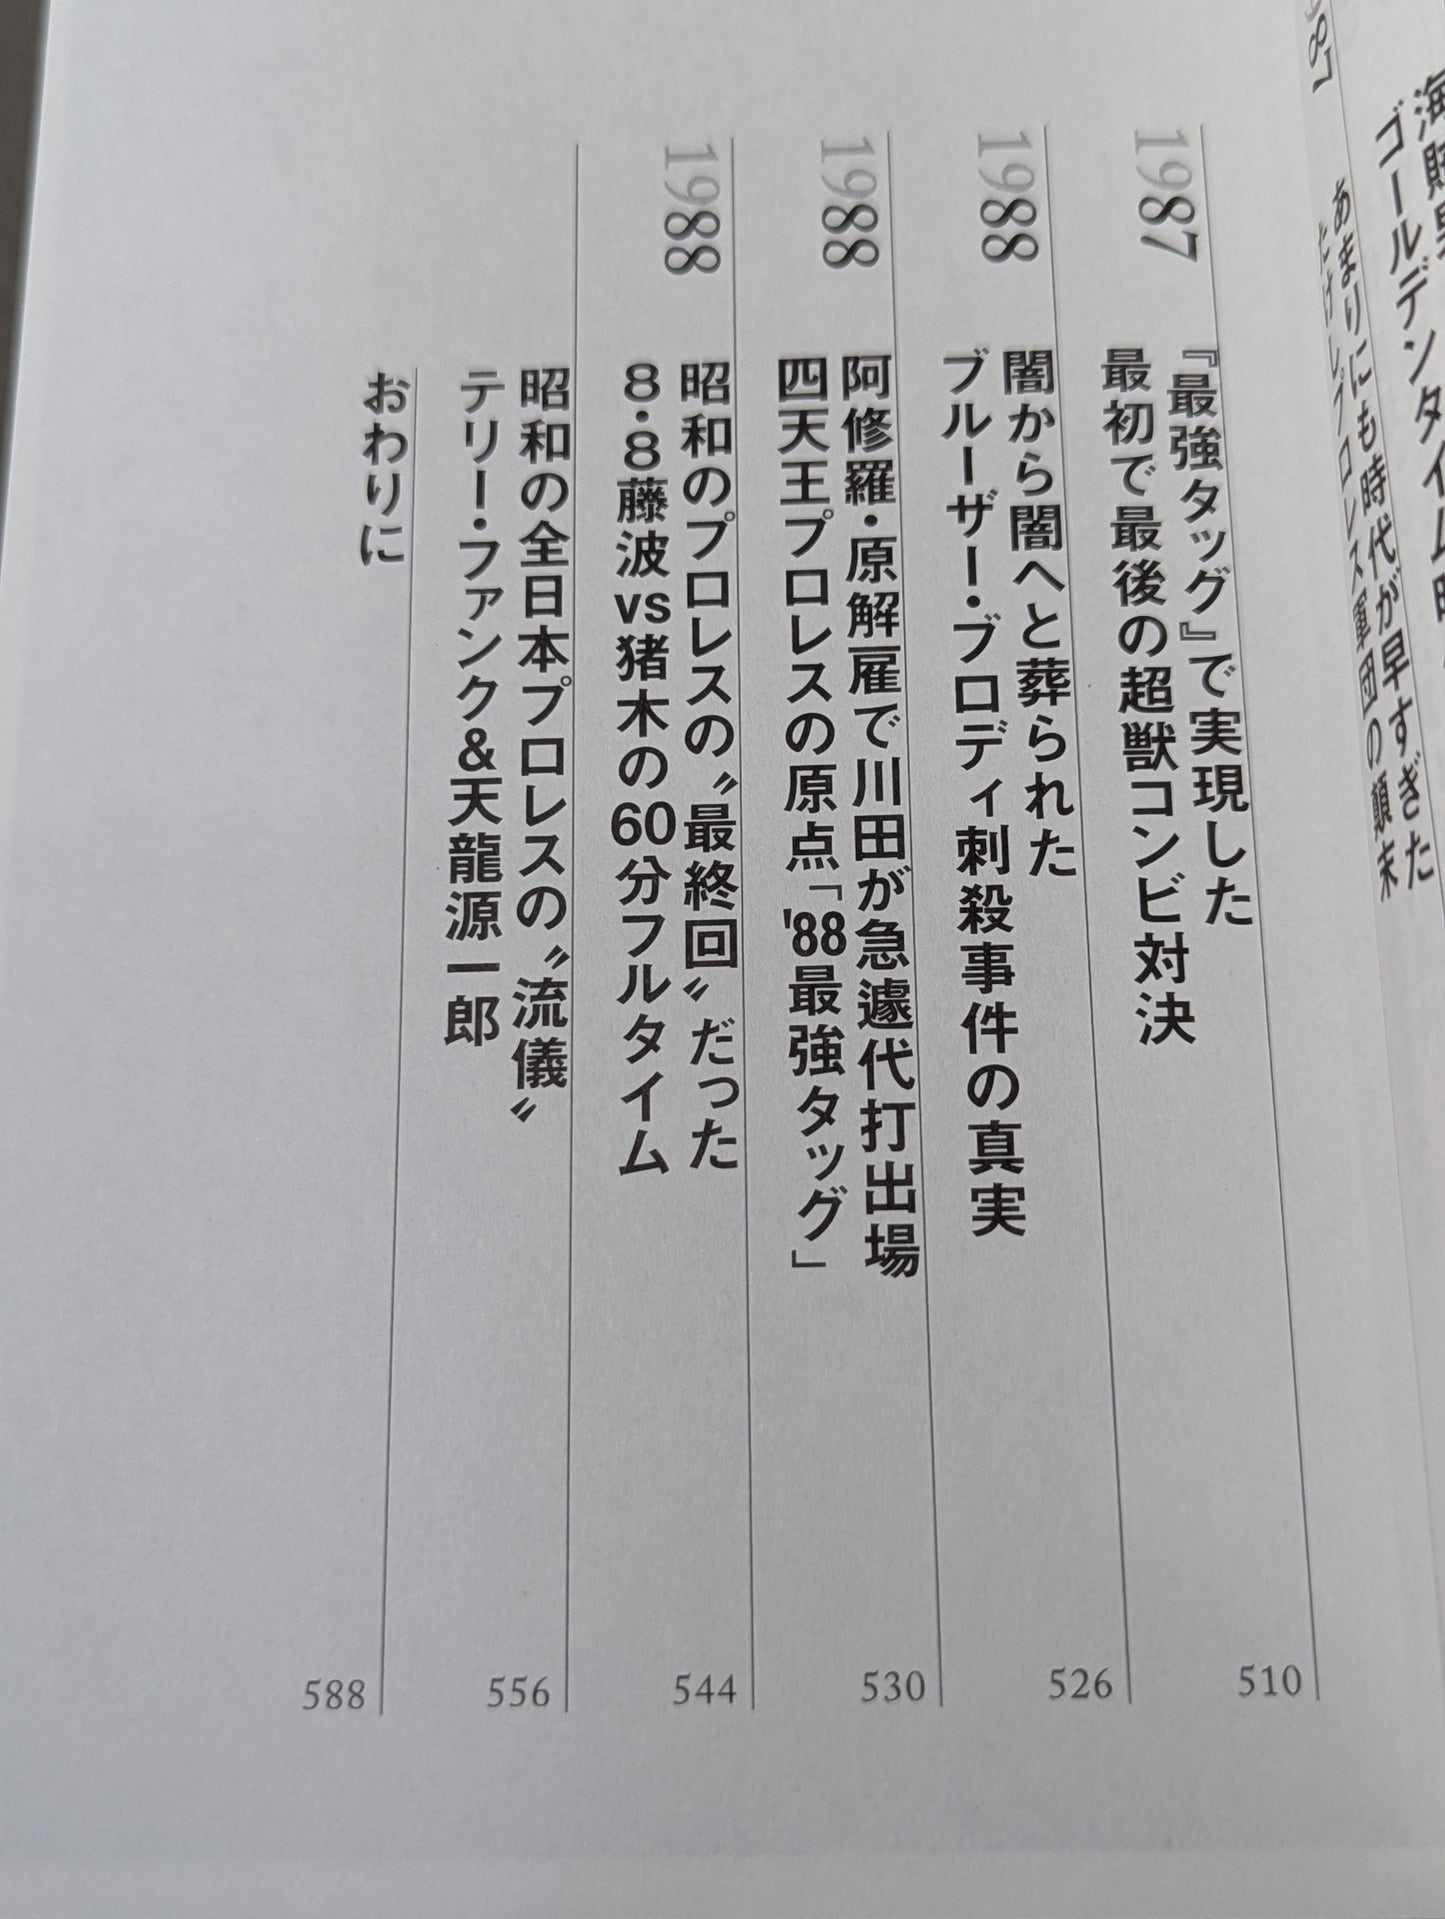 ゴールデンタイム
あまりにも時代が早すぎた
たけしプロレス軍団の顛末
1987
『最強タッグ』で実現した
最初で最後の超獣コンビ対決
510
1988
闇から闇へと葬られた
ブルーザー・ブロディ刺殺事件の真実
526
1988
阿修羅・原解雇で川田が急遽代打出場
四天王プロレスの原点「'88最強タッグ」
530
1988
昭和のプロレスの〝最終回〟だった
8・8藤波vs猪木の60分フルタイム
544
昭和の全日本プロレスの〝流儀〟
テリー・ファンク&天龍源一郎
556
おわりに
588